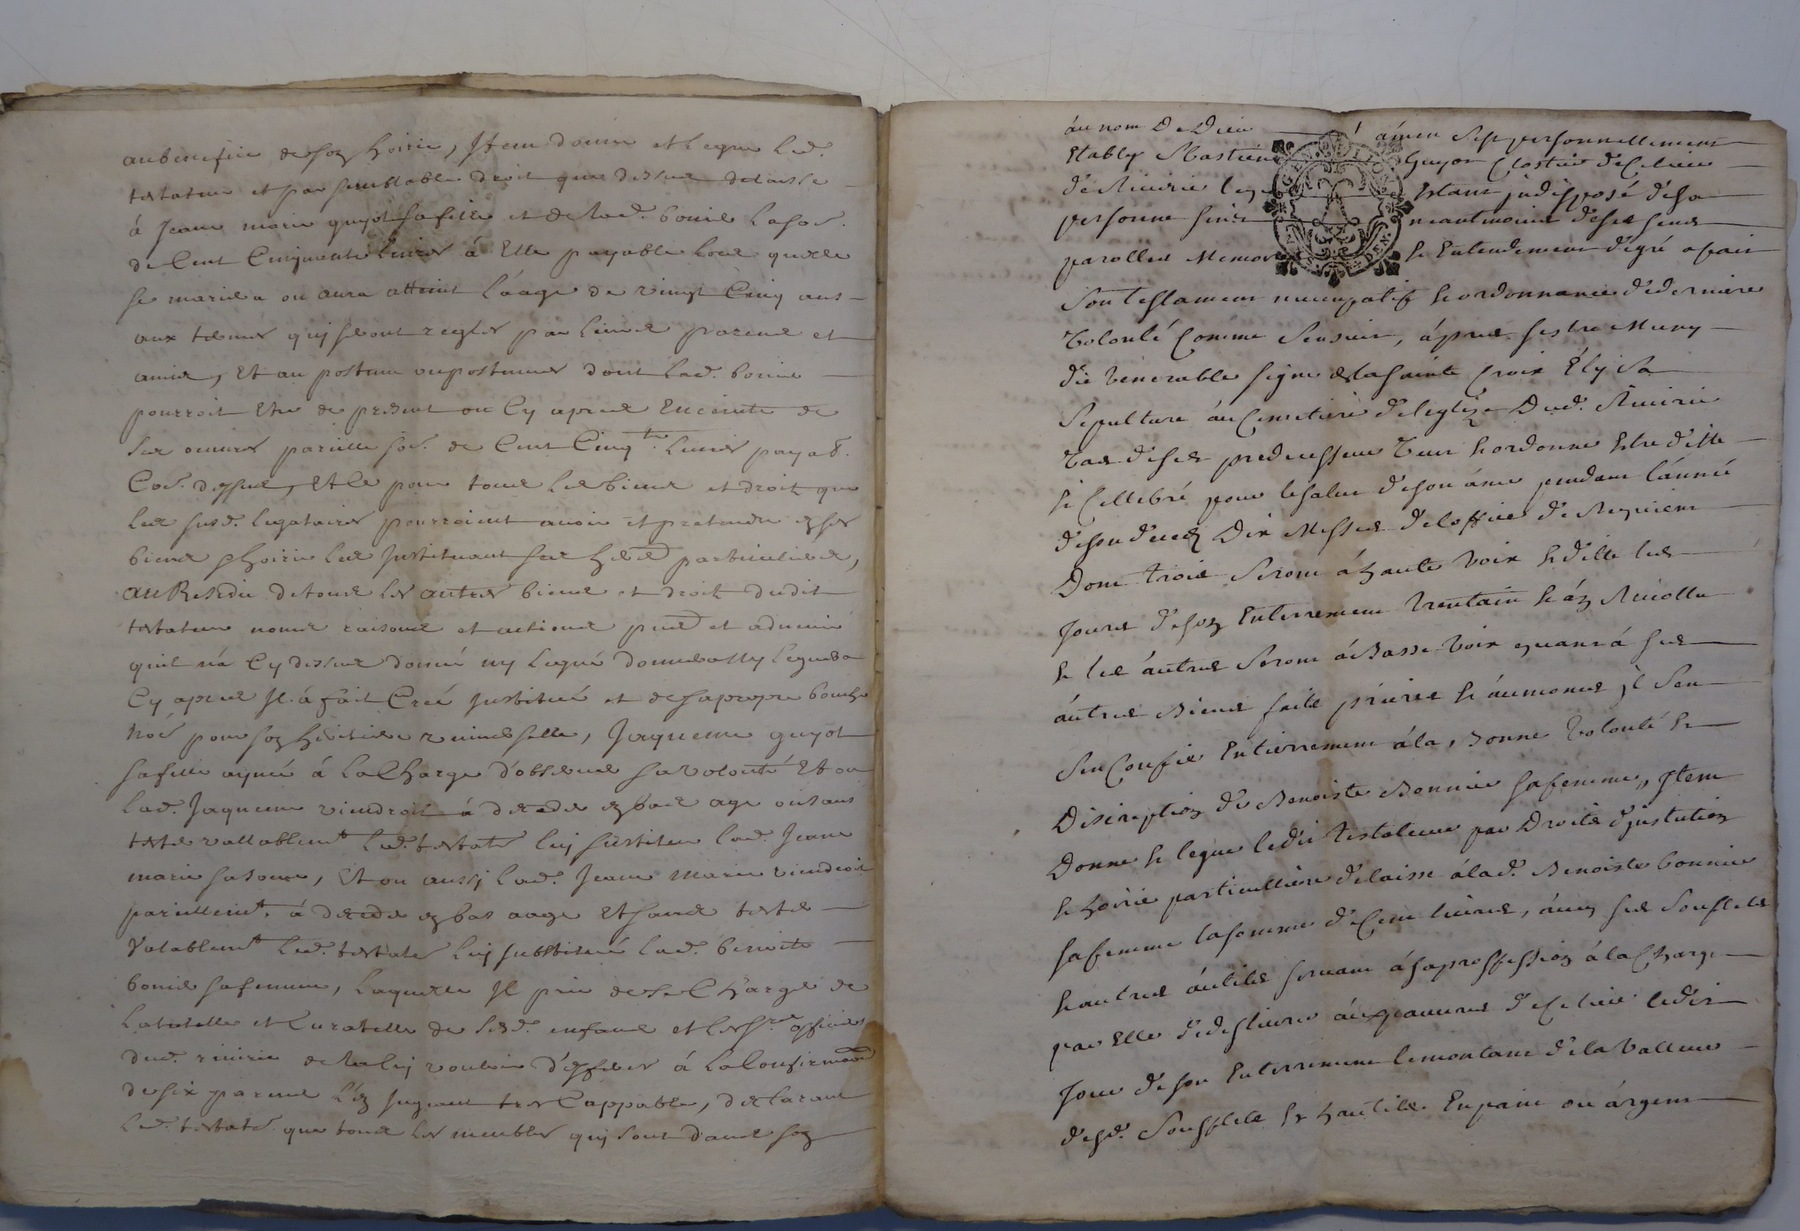 au benefice de son hoirie, Item donne et legue led.
testateur et par semblable droit que dessus delaisse
à Jeane marie guyot sa fille et de lad. bonie la som.
de Cent Cinquante livres à Elle payable lors quelle
se mariera ou aura atteint l'aage de vingt Cinq ans
aux termes quy seront regles par leurs parens et
amis, Et au postume ou postumes dont lad. bonie
pourroit Etre de present ou Cy apres Enceinte de
ses oeuvres pareille som. de Cent Cinqte. livres payab.
Com. dessus, Et Ce pour tous les biens et droits que
les susd. legataires pourroient avoir et pretendre en ses
biens et hoirie les Instituant ses hered particuliers,
Au Residu de tous les autres biens et droits dudit
testateur noms raisons et actions pnt et advenir
quil n'a Cy dessus donné ny legué donnera ny leguera
Cy apres Il a fait Creé Institué et de sa propre bouche
Nommé pour son heritiere universelle, Jaqueme guyot
sa fille aynée à la Charge d'observer sa volonté Et ou
lad. Jaqueme viendroit à deceder en bas age ou sans
tester vallablemt. led. testat. luy substitue lad. Jeane
marie sa soeur, Et ou aussy lad. Jeane Marie viendroit
pareillemt. à deceder en bas aage Et sans tester
Valablemt. led. testate luy substitué lad. benoite
bonie sa femme, laquelle Il prie de se Charger de
la tutelle et Curatelle de sesd. enfans et les Srs. officiers
dud. riverie de la luy vouloir déferer à la Confirmation
de six parens l'en Jugeant tres Cappable, declarant
led. testate. que tous les meubles quy sont dans son
áu nom De Dieu ámen Est personnellement
Etably Bastien Guyot Clostrier de Cellieu
de Riverie leq Estant indisposé de sa
personne sain neantmoins de ses sens
parolles Memoire & Entendement de gré a fait
Son testament nuncupatif & ordonnance de derniere
Volonté Comme Sensuit, ápres sestre Muny
du vénerable signe de la sainte Croix Élit sa
Sepulture áu Cemetiere de leglize Dud. Riverie
Vas de ses predecesseurs Veut & ordonne Estre ditte
& Cellebré pour le salut de son áme pendant lánnée
de son deceds Dix Messes de loffice de Requiem
Dont trois Seront á haute Voix & ditte les
Jours de son Enterrement Trentain & án Revollu
& les áutres Seront á Basse Voix quant á ses
áutres Biens faits prieres & áumones jl sen
Sen Confie Entierrement á la, Bonne Volonté &
Discreption de Benoiste Bonnier sa femme, Item
Donne & legue ledit testateur par Droits djnstitution
& hoirie particulliere delaisse á lad. Benoiste bonnier
sa femme la somme de Cent livres, ávec ses Soufflets
& autres áutils servant á sa proffession á la Charge
par Elle de deslivrer áux pauvres de Cellieu ledit
Jour de son Enterrement le montant de la Valleur
desd. Soufflets & hautils En pain ou árgent